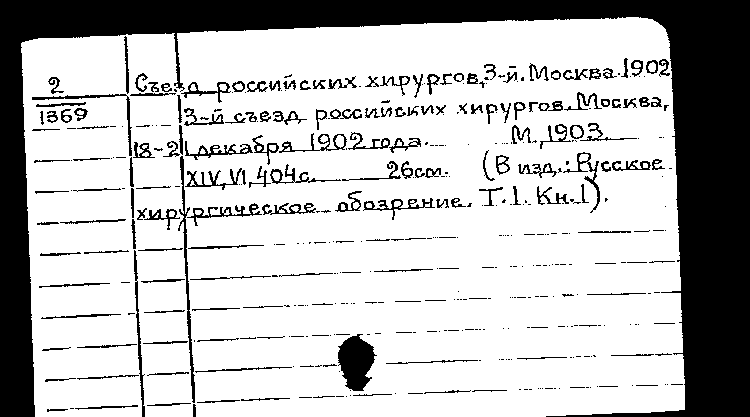 2 Съезд российских хирургов, 3-й. Москва. 1902
1369 3-й съезд российских хирургов. Москва,
18-21 декабря 1902 года. М., 1903.
XIV, VI, 404 с. 26 см. (В изд.: Русское
хирургическое обозрение. Т. 1. Кн. 1).